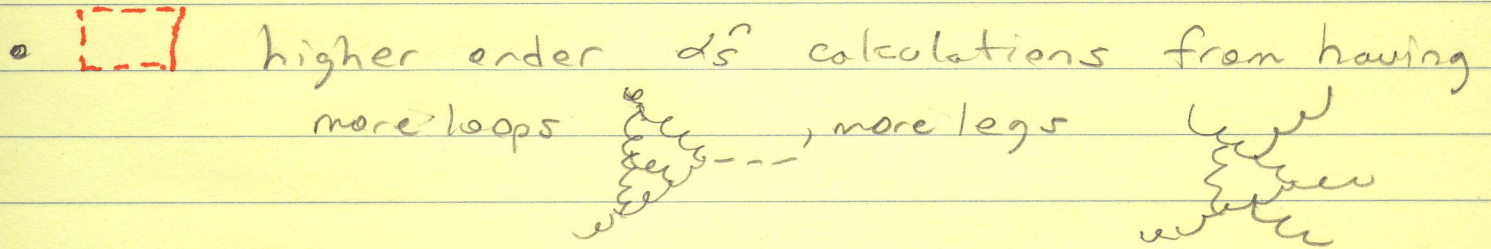 • higher order αs^ calculations from having
more loops , more legs